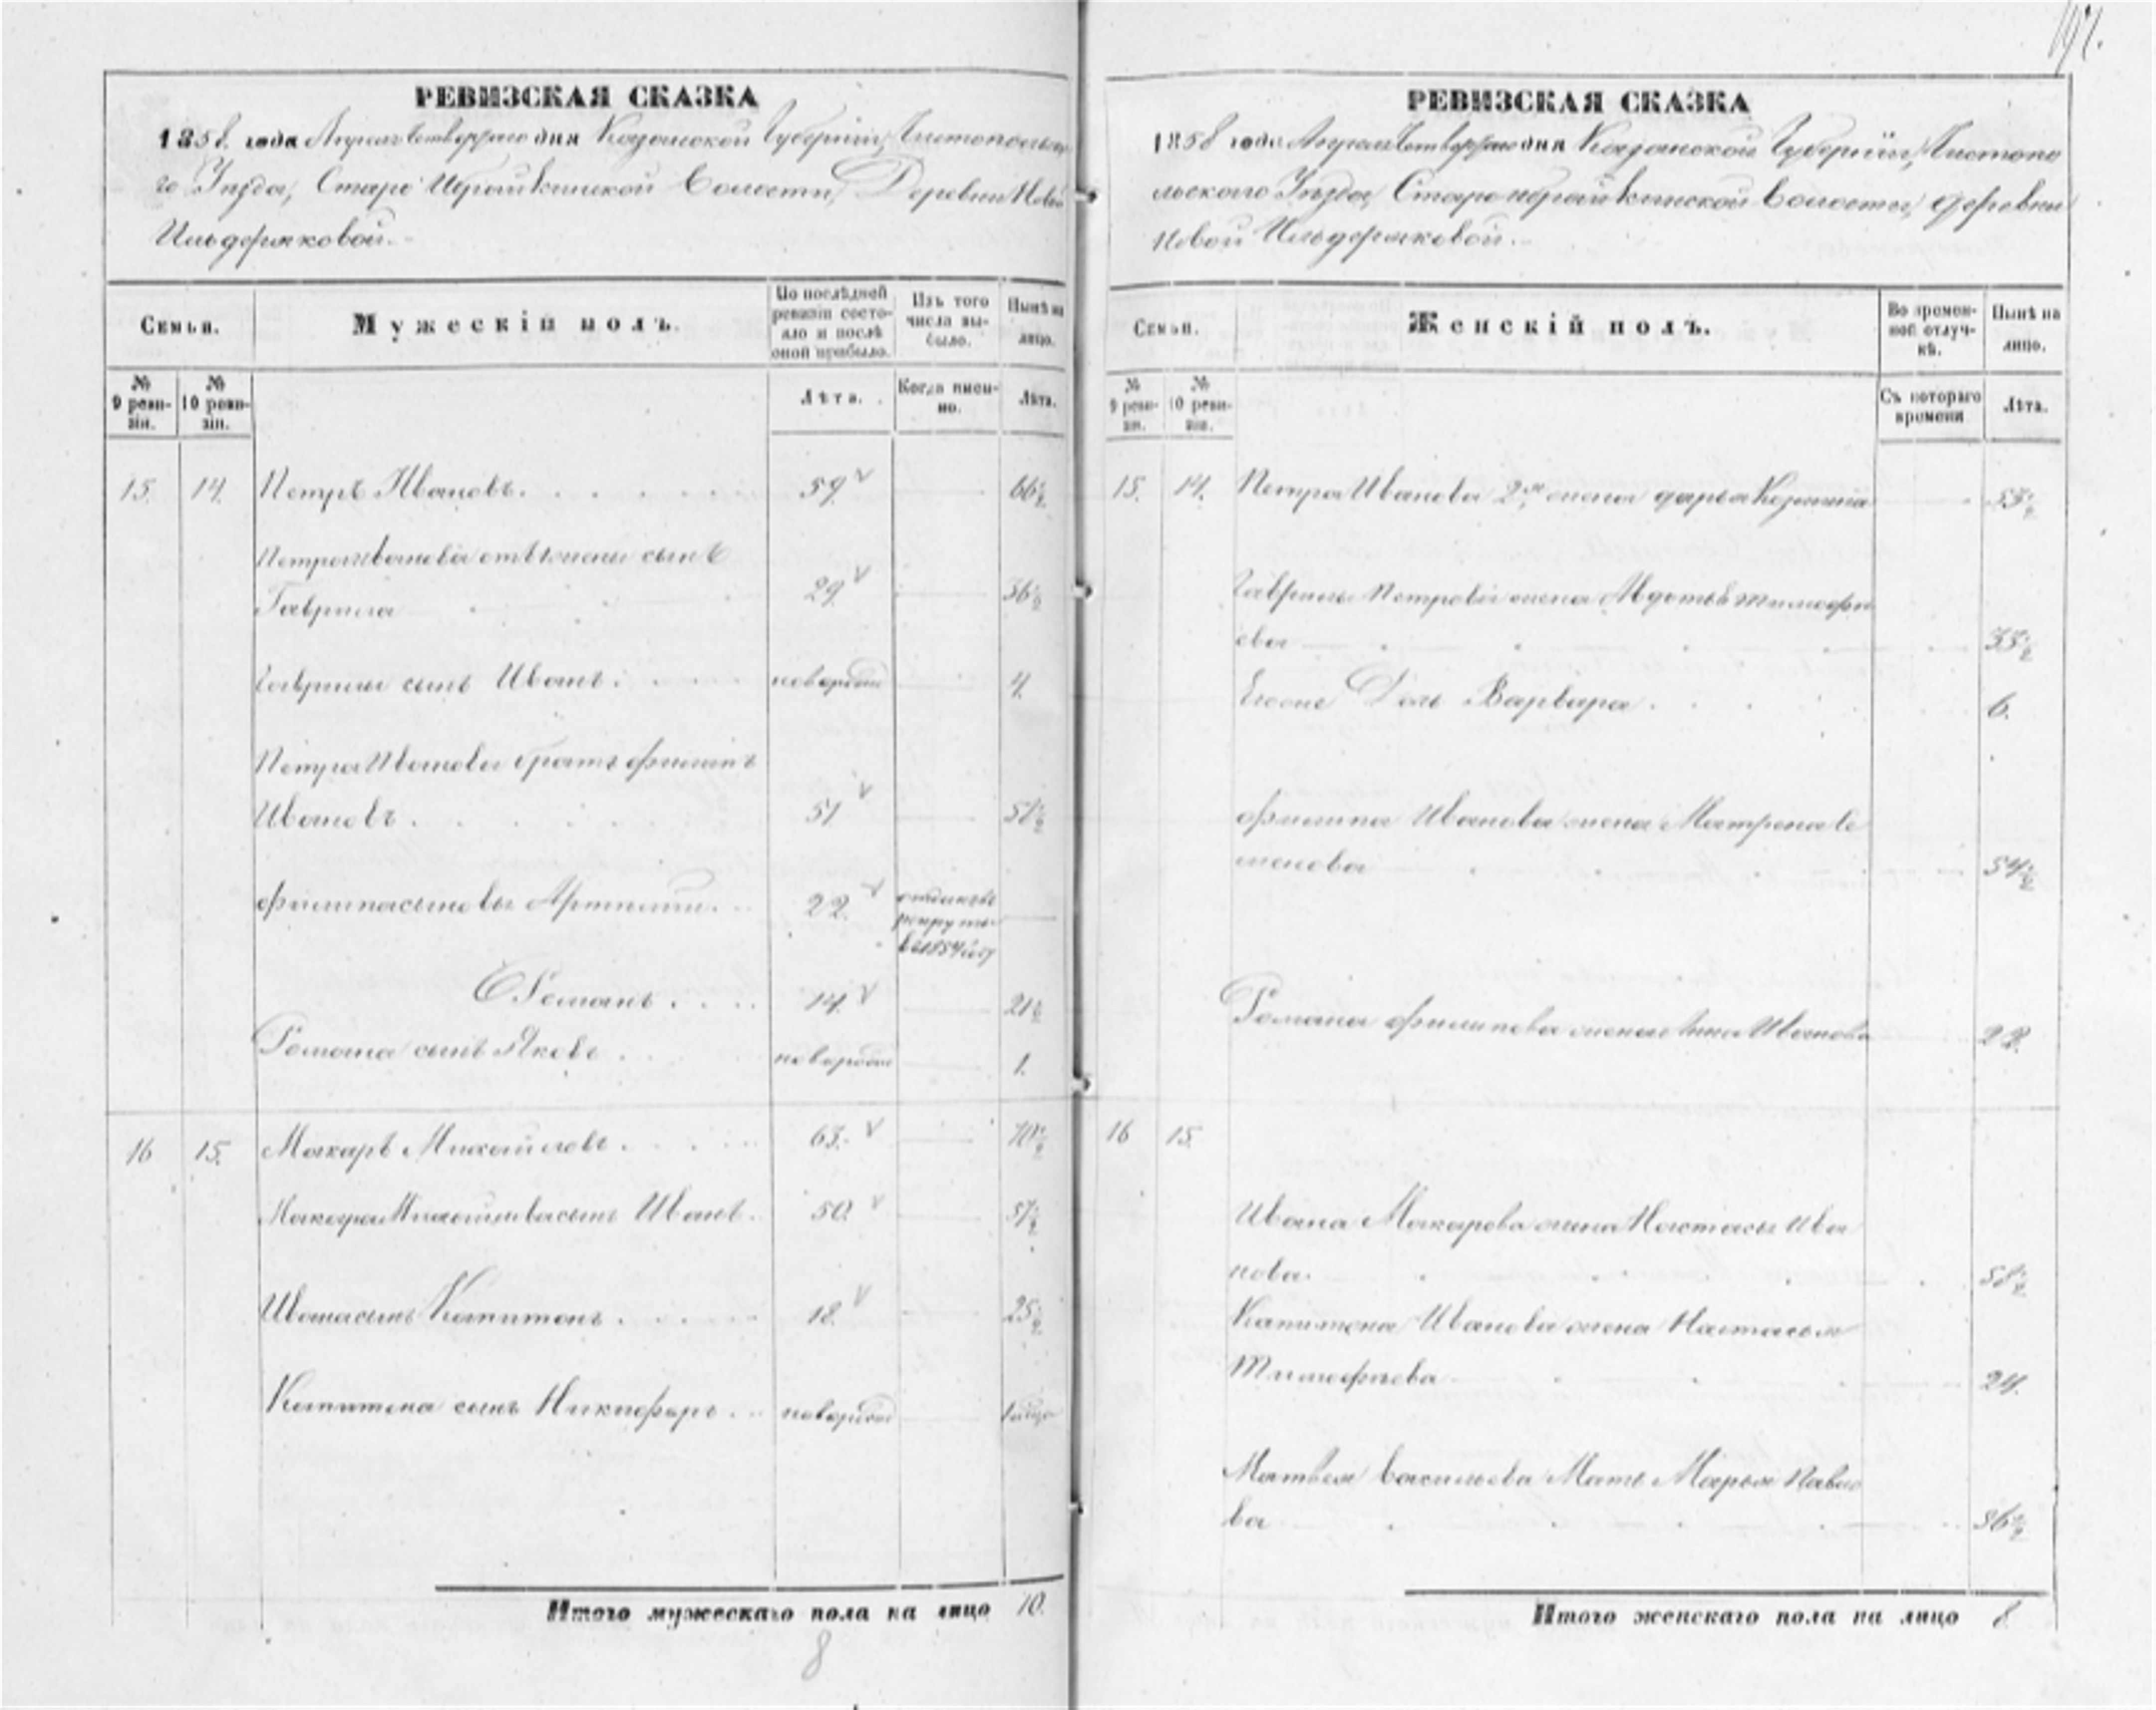 197.
РЕВИЗСКАЯ СКАЗКА
1858 года Апреля Четвертаго дня Казанской Губернии, Чистопольска
го Уезда, Старо Ибрайкинской Волости, Деревни Новой
Ильдеряковой.
Семьи.
Мужескій полъ.
По послѣдней ревизіи состояло и послѣ оной прибыло.
Изъ того числа выбыло.
Нынѣ на лицо.
№ 9 ревизіи.
№ 10 ревизіи.
Лѣта.
Когда именно.
Лѣта.
15. 14. Петръ Ивановъ. 59 66½
Петра Иванова отъ 1 жены сынъ
Гаврила 29 36½
Гаврилы сынъ Иванъ. новорожд 4.
Петра Иванова братъ Филипъ
Ивановъ. 51 58½
Филипа сыновья Артемий. 22. отданъ въ
рекруты
въ 1854 году
2 Романъ. 14. 21½
Романа сынъ Яковъ. новорожд 1.
16 15. Макаръ Михайловъ. 63. 70½
Макара Михайлова сынъ Иванъ. 50. 57½
Ивана сынъ Капитонъ. 18. 25½
Капитона сынъ Никифоръ. новорожд
Итого мужескаго пола на лицо 10.
8
РЕВИЗСКАЯ СКАЗКА
1858 года Апреля Четвертаго дня Казанской Губернии, Чистопо
льскаго Уезда, Староибрайкинской Волости, деревни
Новой Ильдеряковой.
Семьи.
Женскій полъ.
Во временной отлучкѣ.
Нынѣ на лицо.
№ 9 ревизіи.
№ 10 ревизіи.
Съ котораго времени
Лѣта.
15. 14. Петра Иванова 2я жена Дарья Козмина 53½
Гаврилы Петрова жена Авдотья Тимофе
ева 33½
Егоже Дочь Варвара. 6.
Филипа Иванова жена Матрена Се
менова 54½
Романа Филипова жена Анна Иванова 22.
16 15.
Ивана Макарова жена Настасья Ива
нова. 58½
Капитона Иванова жена Настасья
Тимофеева 24.
Матвея Васильева Мать Марья Павло
ва 36½
Итого женскаго пола на лицо 8.